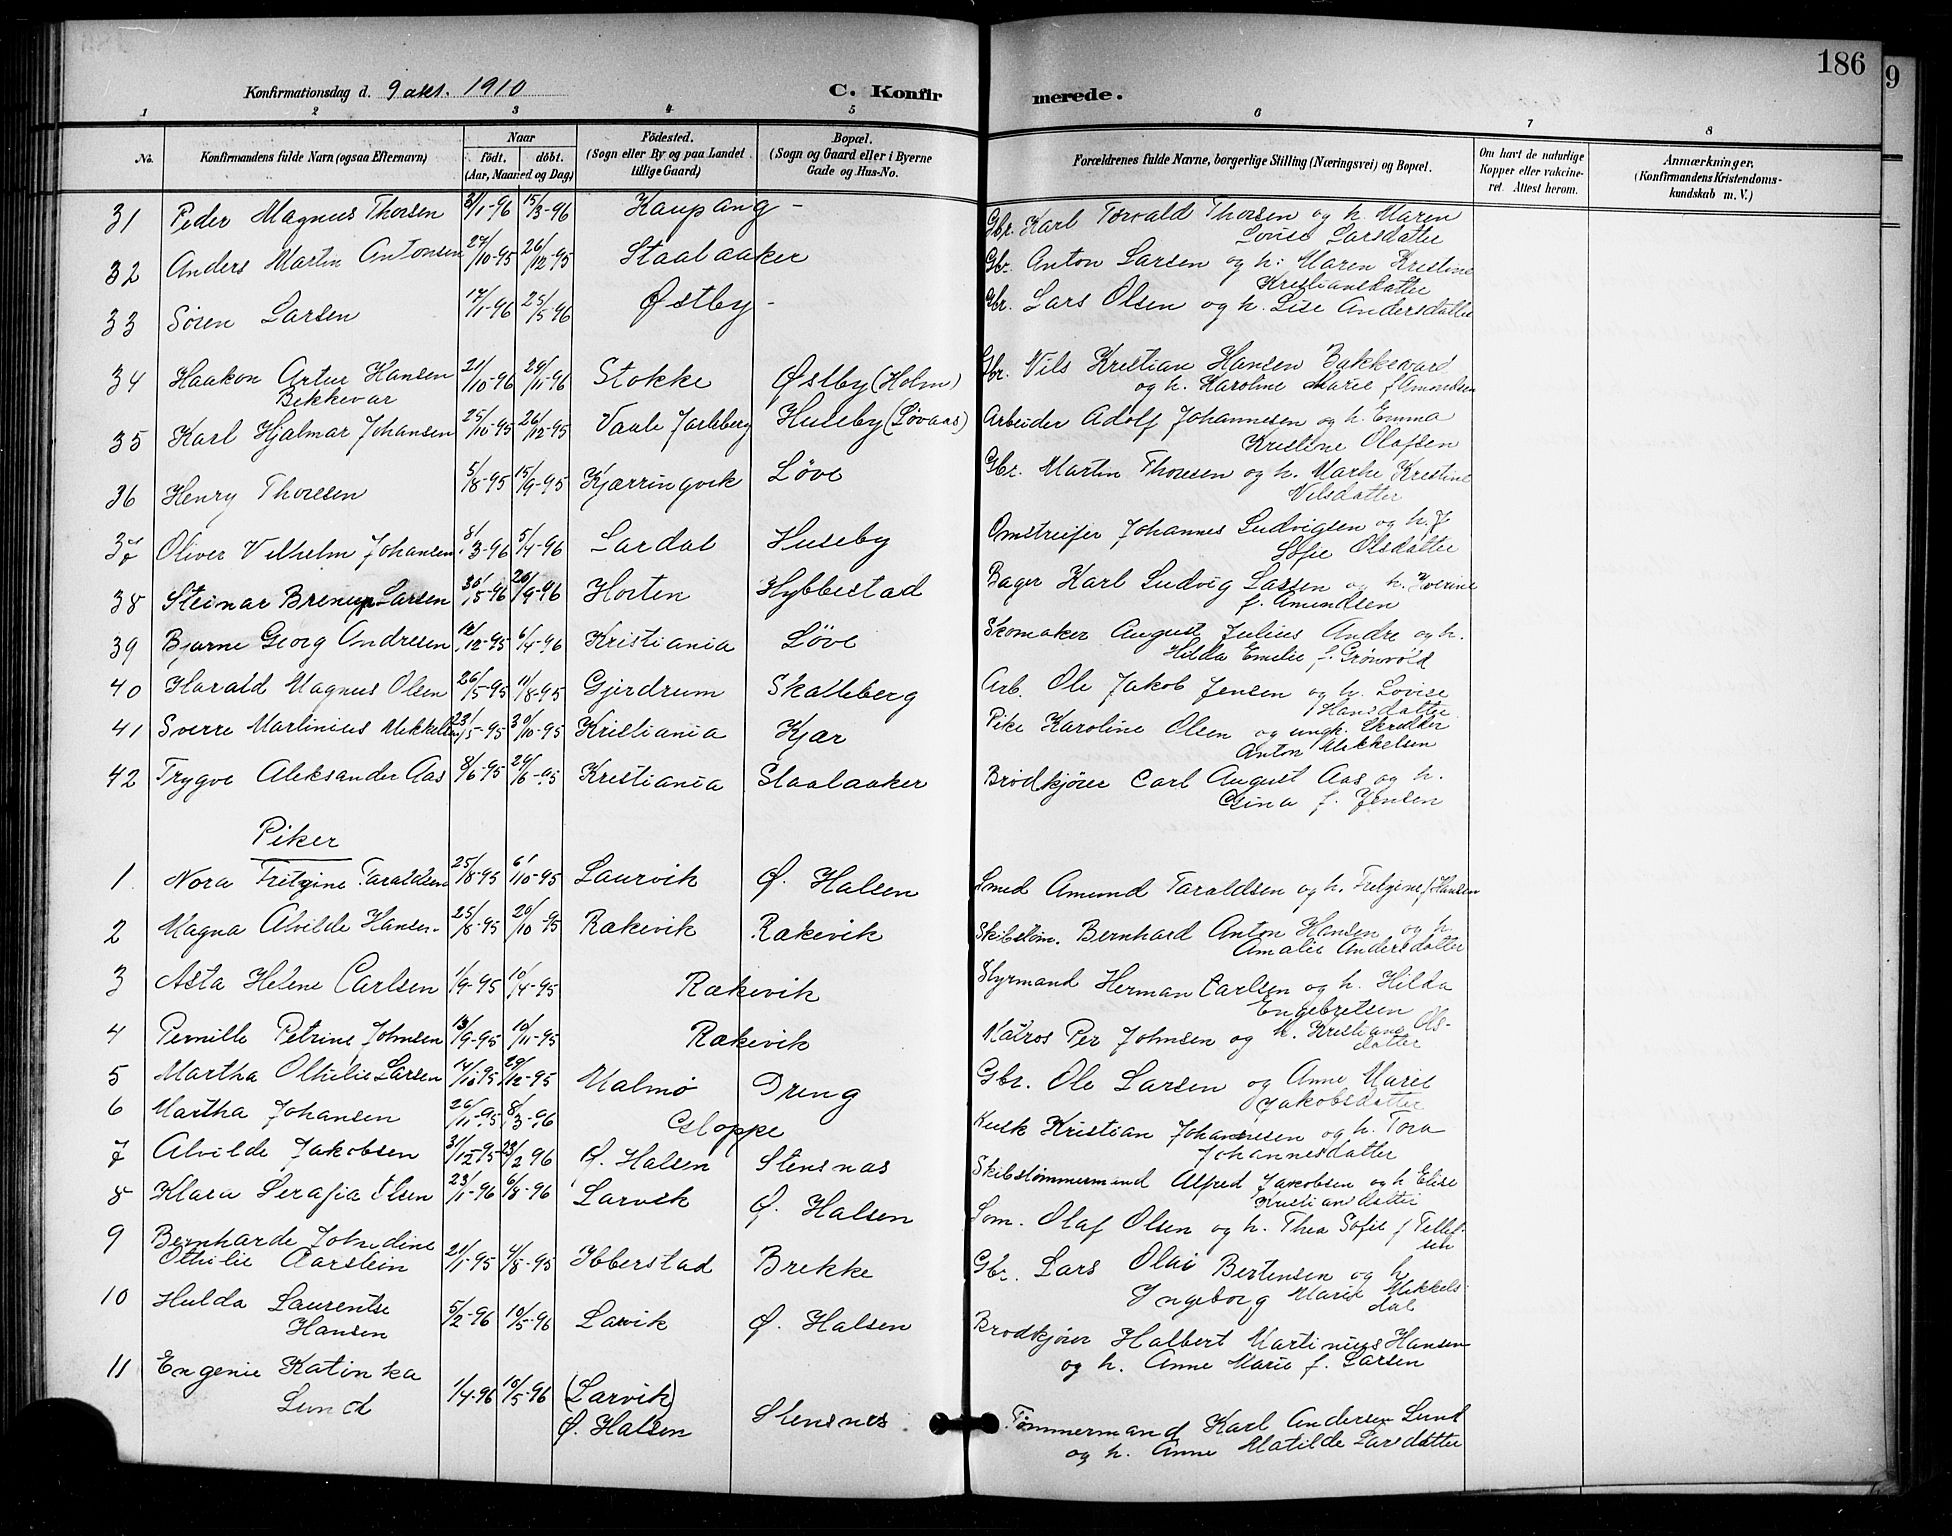 186
9
Konfirmationsdag d. 9 okt. 1910
C. Konfir merede.
1 2 3 4 5 6 7 8
No.
Konfirmandens fulde Navn (ogsaa Efternavn)
Naar
födt. döbt.
(Aar, Maaned og Dag)
Födested.
(Sogn eller By og paa Landet
tillige Gaard)
Bopæl.
(Sogn og Gaard eller i Byerne
Gade og Hus-No.
Forældrenes fulde Navne, borgerlige Stilling (Næringsvei) og Bopæl.
Om havt de naturlige
Kopper eller vakcine-
ret. Attest herom.
Anmærkninger.
(Konfirmandens Kristendoms-
kundskab m. V.)
31 Peder Magnus Thorsen 31/1-96 15/3-96 Kaupang - Gbr. Karl Torvald Thorsen og h. Maren
Louise Larsdatter
32 Anders Martin Antonsen 27/10-95 26/12-95 Staalaaker Gbr. Anton Larsen og h: Maren Kristine
Kristiansdatter
33 Sören Larsen 17/1-96 25/5-96 Østby - Gbr. Lars Olsen og h. Lise Andersdatter
34 Haakon Artur Hansen 21/10-96 29/11-96 Stokke Østby (Holm) Gbr. Nils Kristian Hansen Bakkevard
Bekkevar og h. Karoline Marie f Amundsen
35 Karl Hjalmar Johansen 25/10-95 26/12-95 Vaale Jarlsberg Huseby (Løvaas) Arbeider Adolf Johannesen og h. Emma
Kristine Olafsen
36 Henry Thoresen 5/8-95 15/9-95 Kjærringvik Løve Gbr. Martin Thoresen og h. Marke Kristine
Nilsdatter
37 Oliver Vilhelm Johansen 8/3-96 5/4-96 Lardal Huseby Omstreifer Johannes Ludvigsen og h. J
Sofie Olsdatter
38 Steinar Brenup Larsen 30/5-96 20/9-96 Horten Hybbestad Bager Karl Ludvig Larsen og h. Hverine
f. Amundsen
39 Bjarne Georg Andresen 12/12-95 6/4-96 Kristiania Löve Skomaker August Julius Andre og h.
Hilda Emelie f. Grönvold
40 Harald Magnus Olsen 26/5-95 11/8-95 Gjerdrum Skalleberg Arb. Ole Jakob Jensen og h. Lovise
Hansdatter
41 Sverre Martinius Mikkelsen 23/5-95 30/10-95 Kristiania Kjær Pike Karoline Olsen og ungk. Skrædder
Anton Mikkelsen
42 Trygve Aleksander Aas 8/6-95 29/6-95 Kristiania Staalaaker Brödkjörer Carl August Aas og h.
Gina f. Jensen
Piker
1 Nora Fritzine Taraldsen 25/8-95 6/10-95 Laurvik Ø. Halsen Smed Amund Taraldsen og h. Fritzine f Hansen
2 Magna Alvilde Hansen 25/8-95 20/10-95 Rakevik Rakevik Skibstöm. Bernhard Anton Hansen og h.
Amalie Andersdatter
3 Asta Helene Carlsen 1/9-95 10/4-95 Rækevik Styrmand Herman Carlsen og h. Hilda
Engebretsen
4 Pernille Petrine Johnsen 13/9-95 10/11-95 Rækevik Matros Per Johnsen og h. Kristiane Ols-
datter
5 Martha Othilie Larsen 14/10-95 29/12-95 Malmø Dreng Gbr. Ole Larsen og Anne Marie
Jakobsdatter
6 Martha Johansen 26/11-95 8/3-96 Gloppe Kusk Kristian Johannesen og h. Tora
Johannesdatter
7 Alvilde Jakobsen 31/12-95 23/2 96 Ø. Halsen Stensnæs Skibstømmermand Alfred Jakobsen og h Elise
Kristiansdatter
8 Klara Serafia Olsen 23/1-96 6/8-96 Larvik Ø. Halsen Tom. Olaf Olsen og h. Thea Sofie f Tellef-
sen
9 Bernharde Johndine
Othilie Aarstein 21/1-95 4/8-95 Ibberstad Brekke Gbr. Lars Olai Bertensen og h
Ingeborg Marie Mikkels-
dal
10 Hulda Laurentse
Hansen 5/2-96 10/5-96 Larvik Ø. Halsen Brödkjörer Halbert Martinius Hansen
og h. Anne Marie f. Larsen
11 Engenie Katinka
Lund 1/4-96 10/5-96 (Larvik)
Ø. Halsen Stensnes Tømmermand Karl Andersen Lund
og h. Anne Matilde Larsdatter